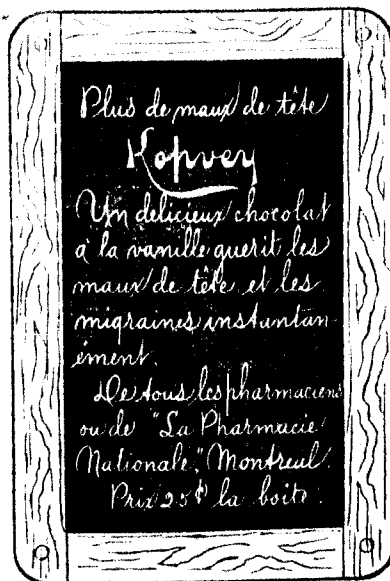 Plus de maux de tête
Kopvey
Un délicieux chocolat
a la vanille guerit les
maux de tête et les
migraines instantan
ément.
De tous les pharmaciens
ou de "La Pharmacie
Nationale," Montreal.
Prix 25¢ la boite.